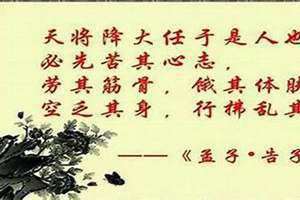 天将降大任于是人也
必先苦其心志，
劳其筋骨，饿其体肤
空乏其身，行拂乱其
——《孟子•告子